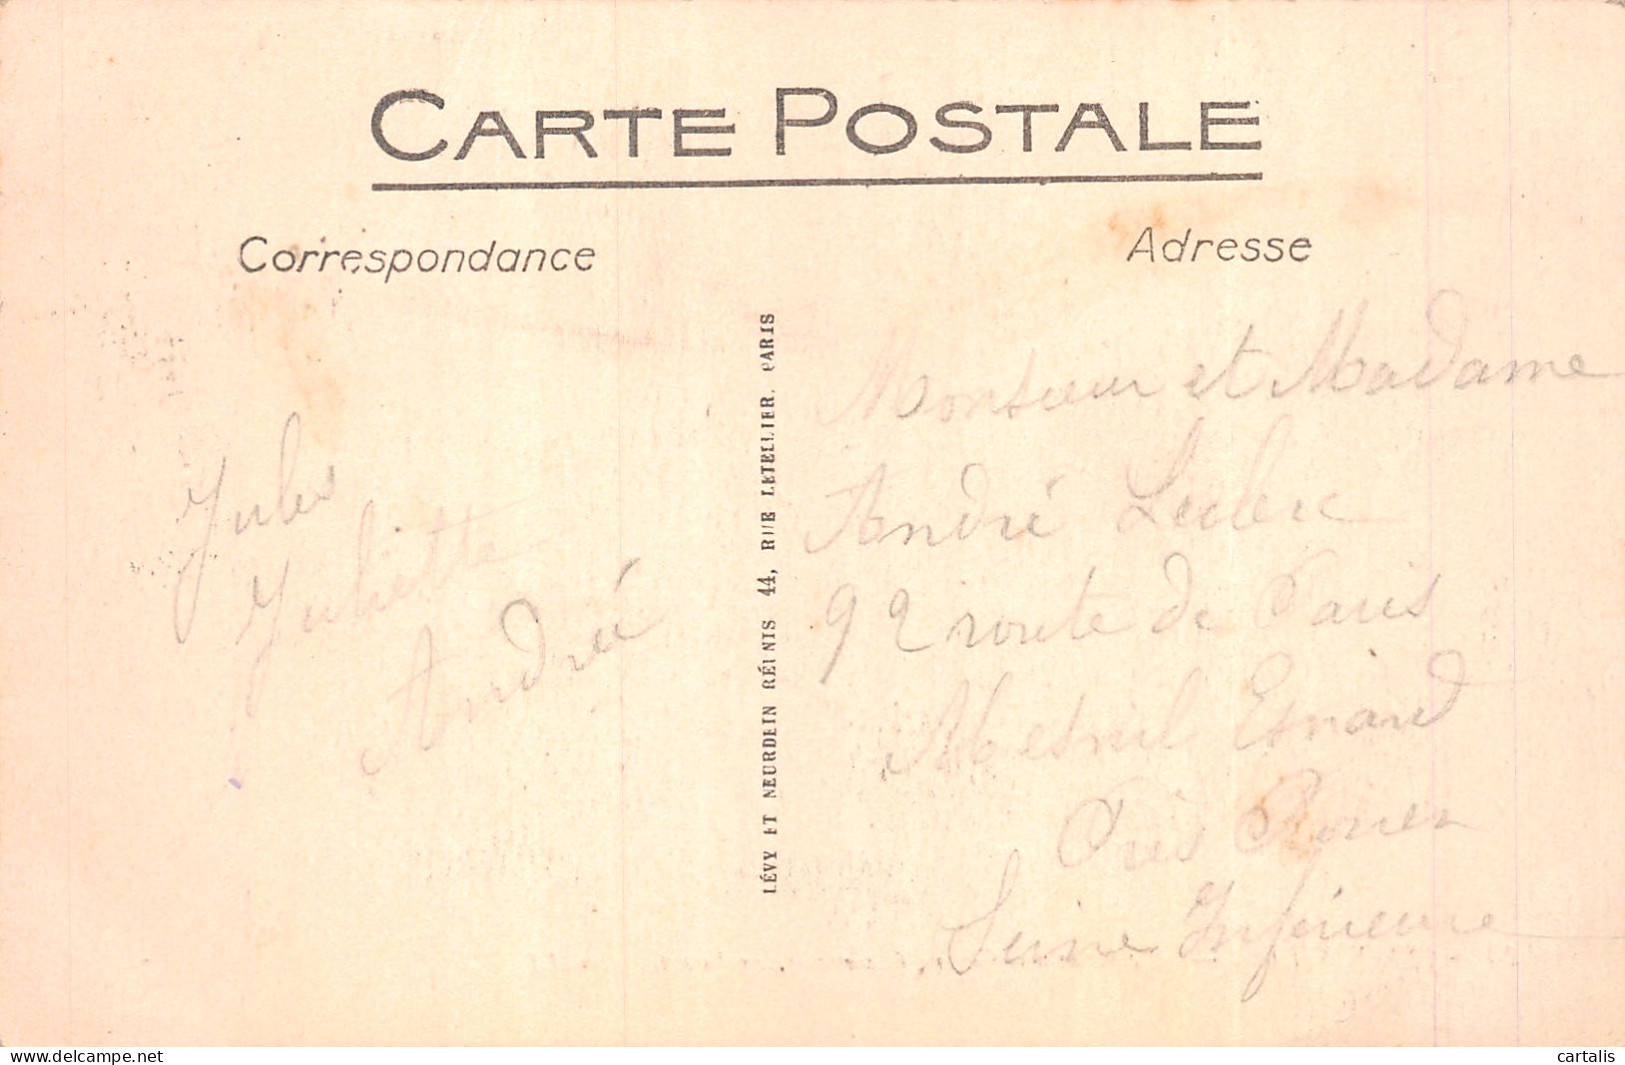 CARTE POSTALE
Correspondance
Adresse
Jules
Juliette
André
LÉVY ET NEURDEIN RÉUNIS 44, RUE LETELLIER, PARIS
Monsieur et Madame
André Leclerc
92 route de Paris
Mesnil Esnard
Près Rouen
Seine Inférieure
www.delcampe.net
cartalis